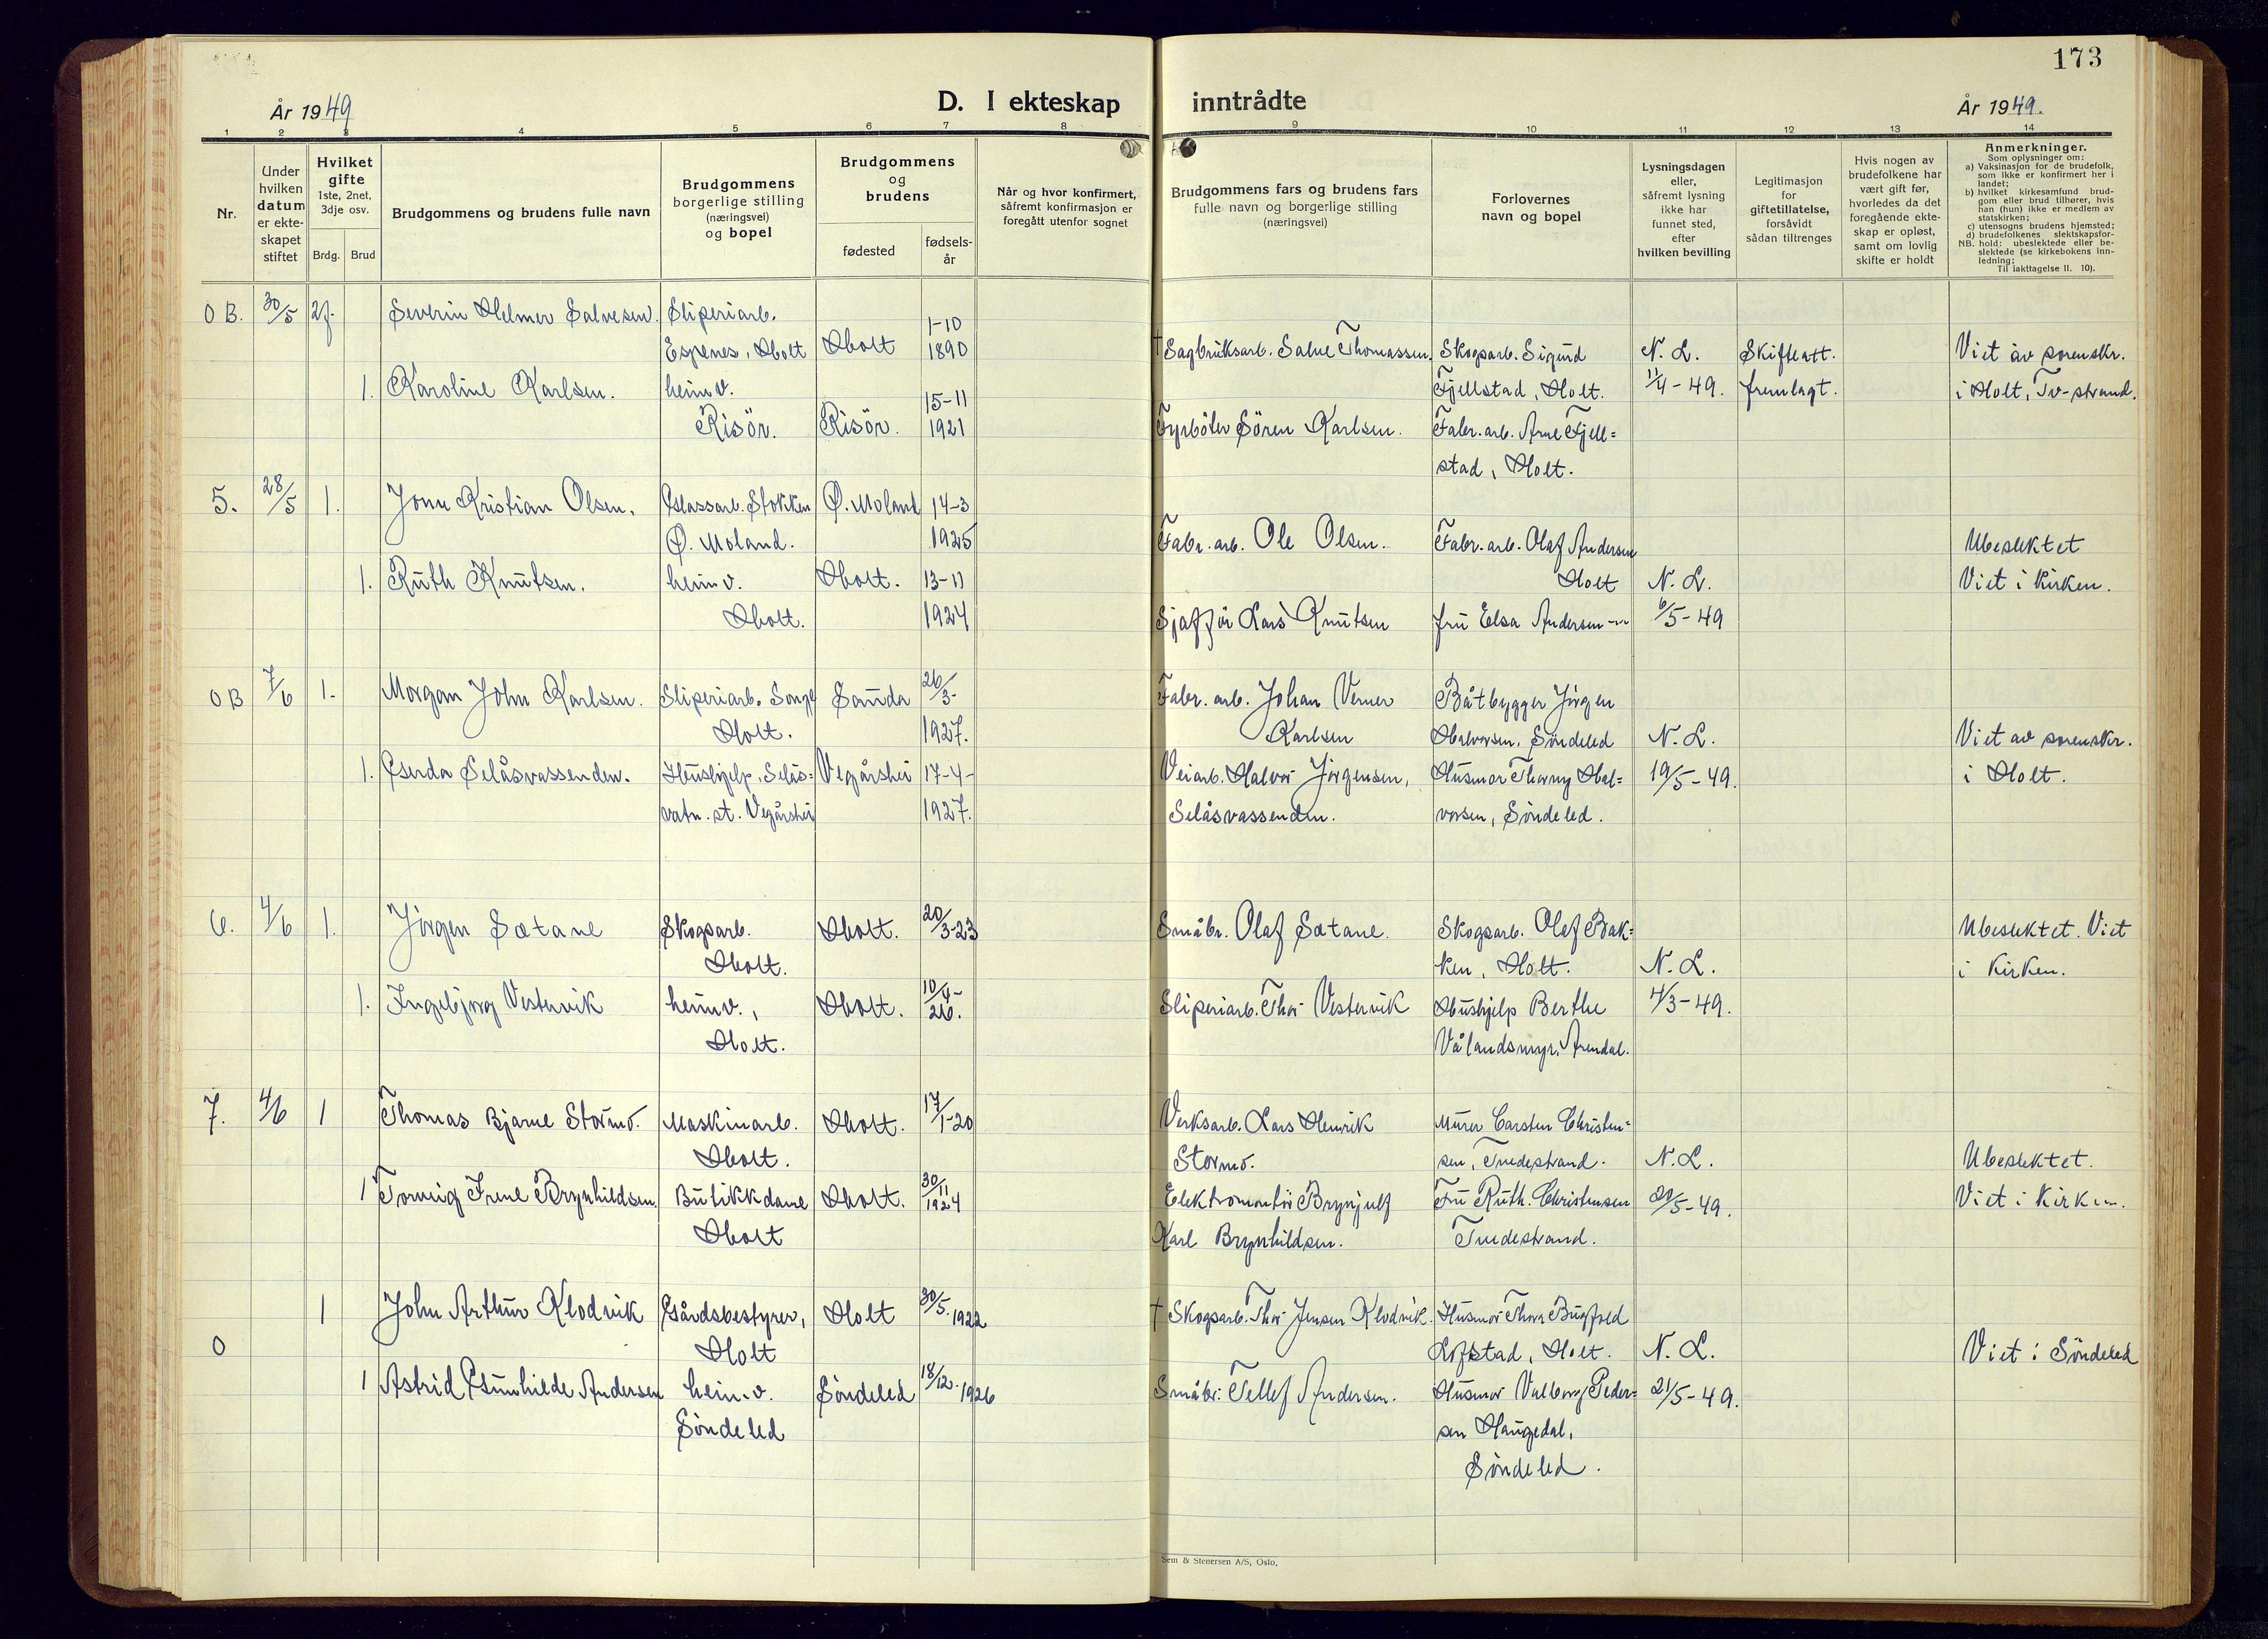 173
År 1949
D. I ekteskap inntrådte
År 1949.
1 2 3 4 5 6 7 8 9 10 11 12 13 14
Nr.
Under
hvilken
datum
er ekte-
skapet
stiftet
Hvilket
gifte
1ste, 2net,
3dje osv.
Brdg. Brud
Brudgommens og brudens fulle navn
Brudgommens
borgerlige stilling
(næringsvei)
og bopel
Brudgommens
og
brudens
fødested
fødsels-
år
Når og hvor konfirmert,
såfremt konfirmasjon er
foregått utenfor sognet
Brudgommens fars og brudens fars
fulle navn og borgerlige stilling
(næringsvei)
Forlovernes
navn og bopel
Lysningsdagen
eller,
såfremt lysning
ikke har
funnet sted,
efter
hvilken bevilling
Legitimasjon
for
giftetillatelse,
forsåvidt
sådan tiltrenges
Hvis nogen av
brudefolkene har
vært gift før,
hvorledes da det
foregående ekte-
skap er opløst,
samt om lovlig
skifte er holdt
Anmerkninger.
Som oplysninger om:
a) Vaksinasjon for de brudefolk,
som ikke er konfirmert her i
landet;
b) hvilket kirkesamfund brud-
gom eller brud tilhører, hvis
han (hun) ikke er medlem av
statskirken;
c) utensogns brudens hjemsted;
d) brudefolkenes slektskapsfor-
NB. hold: ubeslektede eller be-
slektede (se kirkebokens inn-
ledning;
Til iakttagelse II. 10).
O B. 30/5 2g. Severin Helmer Salvesen. Sliperiarb.
Espenes, Holt Holt 1-10 1890 † Sagbruksarb. Salve Thomassen. Skogsarb. Sigurd N. L. Skifteatt. Viet av sorenskr.
1. Karoline Karlsen. heimv. Fjellstad, Holt. 11/4-49. fremlagt. i Holt, Tv-strand.
Risör. Risör. 15-11 1921 Fyrböter Sören Karlsen. Fabr. arb. Arne Fjell=
stad, Holt.
5. 28/5 1. John Kristian Olsen. Glassarb. Stokken Ø. Moland 14-3
Ø. Moland. 1925 Fabr. arb. Ole Olsen. Fabr. arb. Olaf Andersen Ubeslektet
1. Ruth Knutsen. heimv. Holt. 13-11 Holt N. L. Viet i Kirken.
Holt. 1924 Sjafför Lars Knutsen fru Elsa Andersen -"- 6/5-49
O B 7/6 1. Morgan John Karlsen. Sliperiarb. Songe Sanda 26/3- Fabr. arb. Johan Verner Båtbygger Jörgen
Holt. 1927. Karlsen Halvorsen, Söndeled N. L. Viet av sorenskr.
1. Gerda Selåsvassenden. Hushjelp, Selås= Vegårshei 17-4- Veiarb. Halvor Jörgensen, Husmor Thorny Hal= 19/5-49. i Holt.
vatn. st. Vegårshei 1927. Selåsvassenden. vorsen, Söndeled.
6. 4/6 1. Jörgen Sætane Skogsarb. Holt. 20/3-23 Småbr. Olaf Sætane. Skogsarb. Olaf Bak= Ubeslektet. Viet
Holt. ken, Holt. N. L. i Kirken.
1. Ingebjørg Vestervik heimv., Holt. 10/4-26. Sliperiarb. Thor Vestervik Hushjelp Berthe 4/3-49.
Holt. Vålandsmyr, Arendal.
7. 4/6 1 Thomas Bjarne Stormo. Maskinarb. Holt. 17/1-20 Verksarb. Lars Henrik Murer Carsten Christen=
Holt. Stormo. sen, Tvedestrand. N. L. Ubeslektet.
1 Torveig Irene Brynhildsen. Butikkdame Holt. 30/11 1924 Elektromontör Brynjulf Fru Ruth. Christensen 20/5-49. Viet i Kirken.
Holt Karl Brynhildsen. Tvedestrand.
1 John Arthur Klodvik Gårdsbestyrer, Holt 30/5. 1922 † Skogsarb. Thor Jensen Klodvik. Husmor Thora Bugfold
O Holt Lofstad, Holt. N. L. Viet i Söndeled
1 Astrid Gunhilde Andersen heim.v. Söndeled 18/12. 1926 Småbr. Tellef Andersen. Husmor Valborg Peder= 21/5-49.
Söndeled sen Haugedal,
Söndeled.
Sem & Stenersen A/S, Oslo.